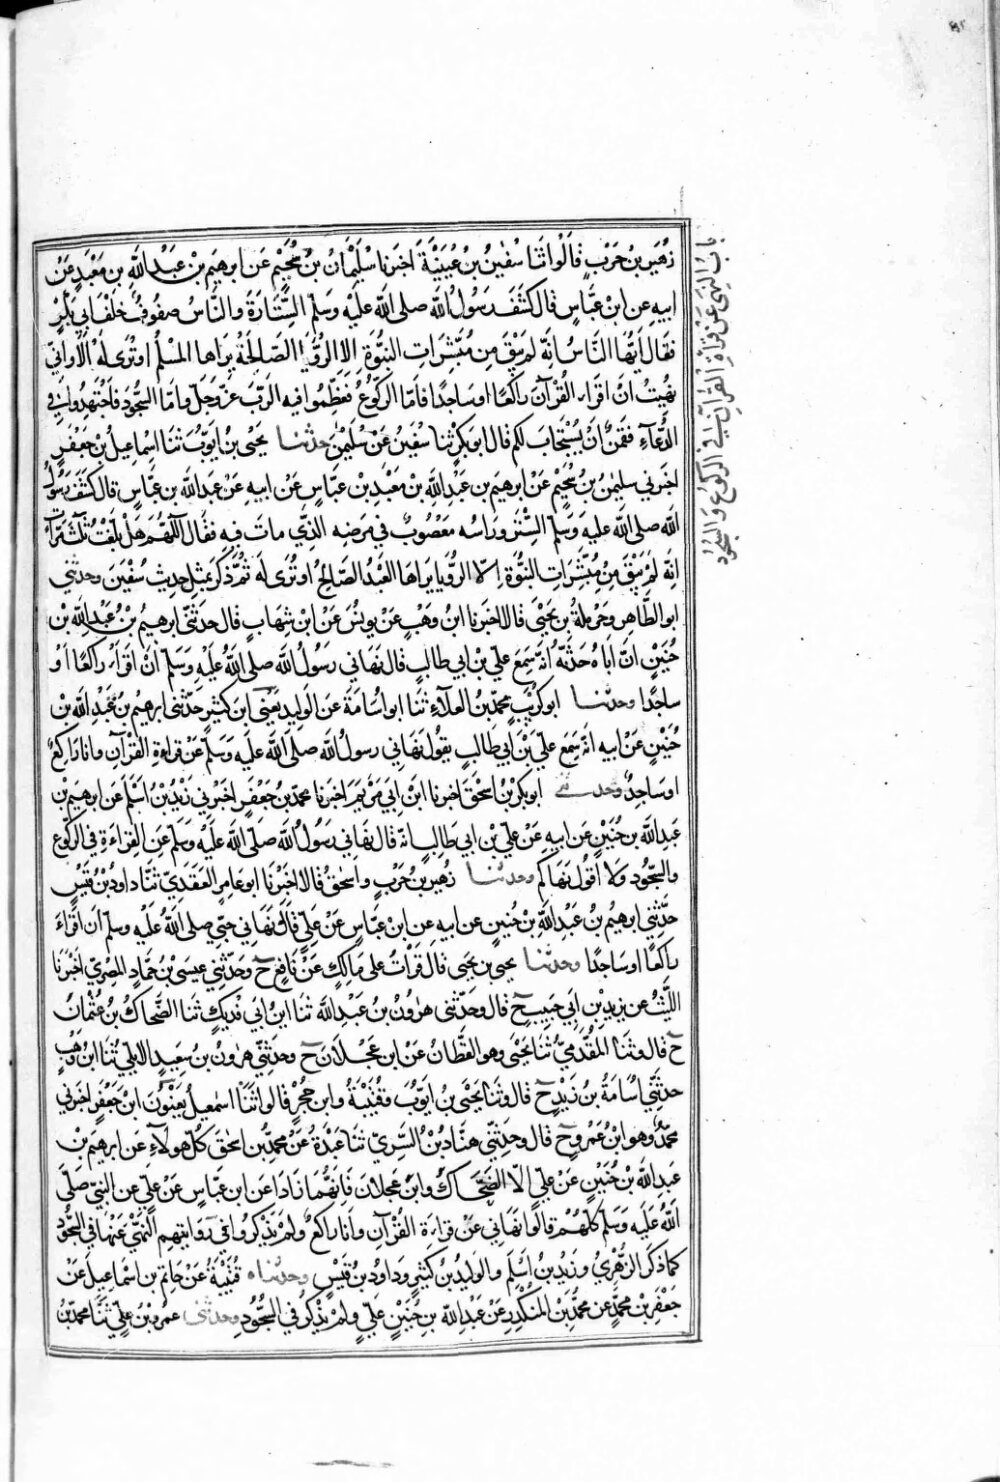 باب النهي عن قراءة القرآن في الركوع والسجود
زهير بن حرب قالوا ثنا سفين بن عيينة اخبرنا سليمان بن سحيم عن ابرهيم بن عبد الله بن معبد عن
ابيه عن ابن عباس قال كشف رسول الله صلى الله عليه وسلم الستارة والناس صفوف خلف ابي بكر
فقال ايها الناس انه لم يبق من مبشرات النبوة الا الرؤيا الصالحة يراها المسلم او ترى له الا واني
نهيت ان اقراء القرآن راكعا او ساجدا فاما الركوع فعظموا فيه الرب عز وجل واما السجود فاجتهدوا في
الدعاء فقمن ان يستجاب لكم قال ابو بكر ثنا سفين عن سليمن حدثنا يحيى بن ايوب ثنا اسماعيل بن جعفر
اخبرني سليمن بن سحيم عن ابرهيم بن عبد الله بن معبد بن عباس عن ابيه عن عبد الله بن عباس قال كشف رسول
الله صلى الله عليه وسلم الستر وراسه معصوب في مرضه الذي مات فيه فقال اللهم هل بلغت ثلث مرات
انه لم يبق من مبشرات النبوة الا الرؤيا يراها العبد الصالح او ترى له ثم ذكر بمثل حديث سفين وحدثني
ابو الطاهر وحرملة بن يحيى قالا اخبرنا ابن وهب عن يونس عن ابن شهاب قال حدثني ابرهيم بن عبد الله بن
حنين ان اباه حدثه انه سمع علي بن ابي طالب قال نهاني رسول الله صلى الله عليه وسلم ان اقراء راكعا او
ساجدا وحدثنا ابو كريب محمد بن العلاء ثنا ابو اسامة عن الوليد يعني ابن كثير حدثني ابرهيم بن عبد الله بن
حنين عن ابيه انه سمع علي بن ابي طالب يقول نهاني رسول الله صلى الله عليه وسلم عن قراءة القرآن وانا راكع
او ساجد وحدثني ابو بكر بن اسحق اخبرنا ابن ابي مريم اخبرنا محمد بن جعفر اخبرني زيد بن اسلم عن ابرهيم بن
عبد الله بن حنين عن ابيه عن علي بن ابي طالب انه قال نهاني رسول الله صلى الله عليه وسلم عن القراءة في الركوع
والسجود ولا اقول نهاكم وحدثنا زهير بن حرب واسحق قالا اخبرنا ابو عامر العقدي ثنا داود بن قيس
حدثني ابرهيم بن عبد الله بن حنين عن ابيه عن ابن عباس عن علي قال نهاني حبي صلى الله عليه وسلم ان اقراء
راكعا او ساجدا وحدثنا يحيى بن يحيى قال قرات على مالك عن نافع ح وحدثني عيسى بن حماد المصري اخبرنا
الليث عن يزيد بن ابي حبيب ح قال وحدثني هرون بن عبد الله ثنا ابن ابي فديك ثنا الضحاك بن عثمان
ح قال وثنا المقدمي ثنا يحيى وهو القطان عن ابن عجلان ح وحدثني هرون بن سعيد الايلي ثنا ابن وهب
حدثني اسامة بن زيد ح قال وثنا يحيى بن ايوب وقتيبة وابن حجر قالوا ثنا اسمعيل يعنون ابن جعفر اخبرني
محمد وهو ابن عمرو ح قال وحدثني هناد بن السري ثنا عبدة عن محمد بن اسحق كل هولاء عن ابرهيم بن
عبد الله بن حنين عن علي الا الضحاك وابن عجلان فانهما زادا عن ابن عباس عن علي عن النبي صلى
الله عليه وسلم كلهم قالوا نهاني عن قراءة القرآن وانا راكع ولم يذكروا في روايتهم النهي عنها في السجود
كما ذكر الزهري وزيد بن اسلم والوليد بن كثير وداود بن قيس وحدثناه قتيبة عن حاتم بن اسماعيل عن
جعفر بن محمد عن محمد بن المنكدر عن عبد الله بن حنين علي ولم يذكر في السجود وحدثني عمرو بن علي ثنا محمد بن